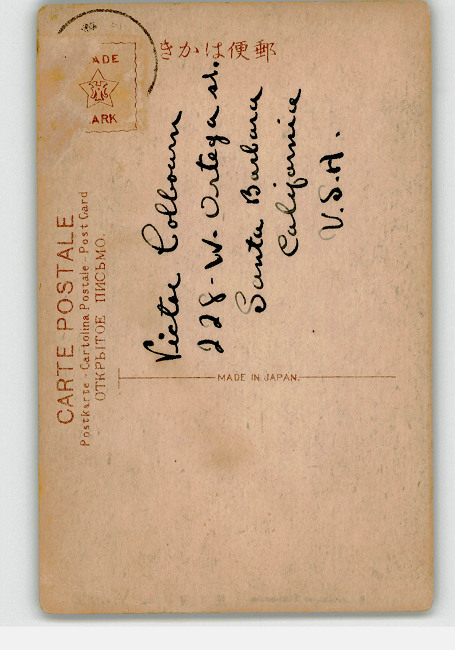 きかは便郵
ADE
ARK
CARTE POSTALE
Postkarte - Cartolina Postale - Post Card
ОТКРЫТОЕ ПИСЬМО.
Victor Colbourn
228 - W. Ortega st.
Santa Barbara
California
U.S.A.
MADE IN JAPAN.